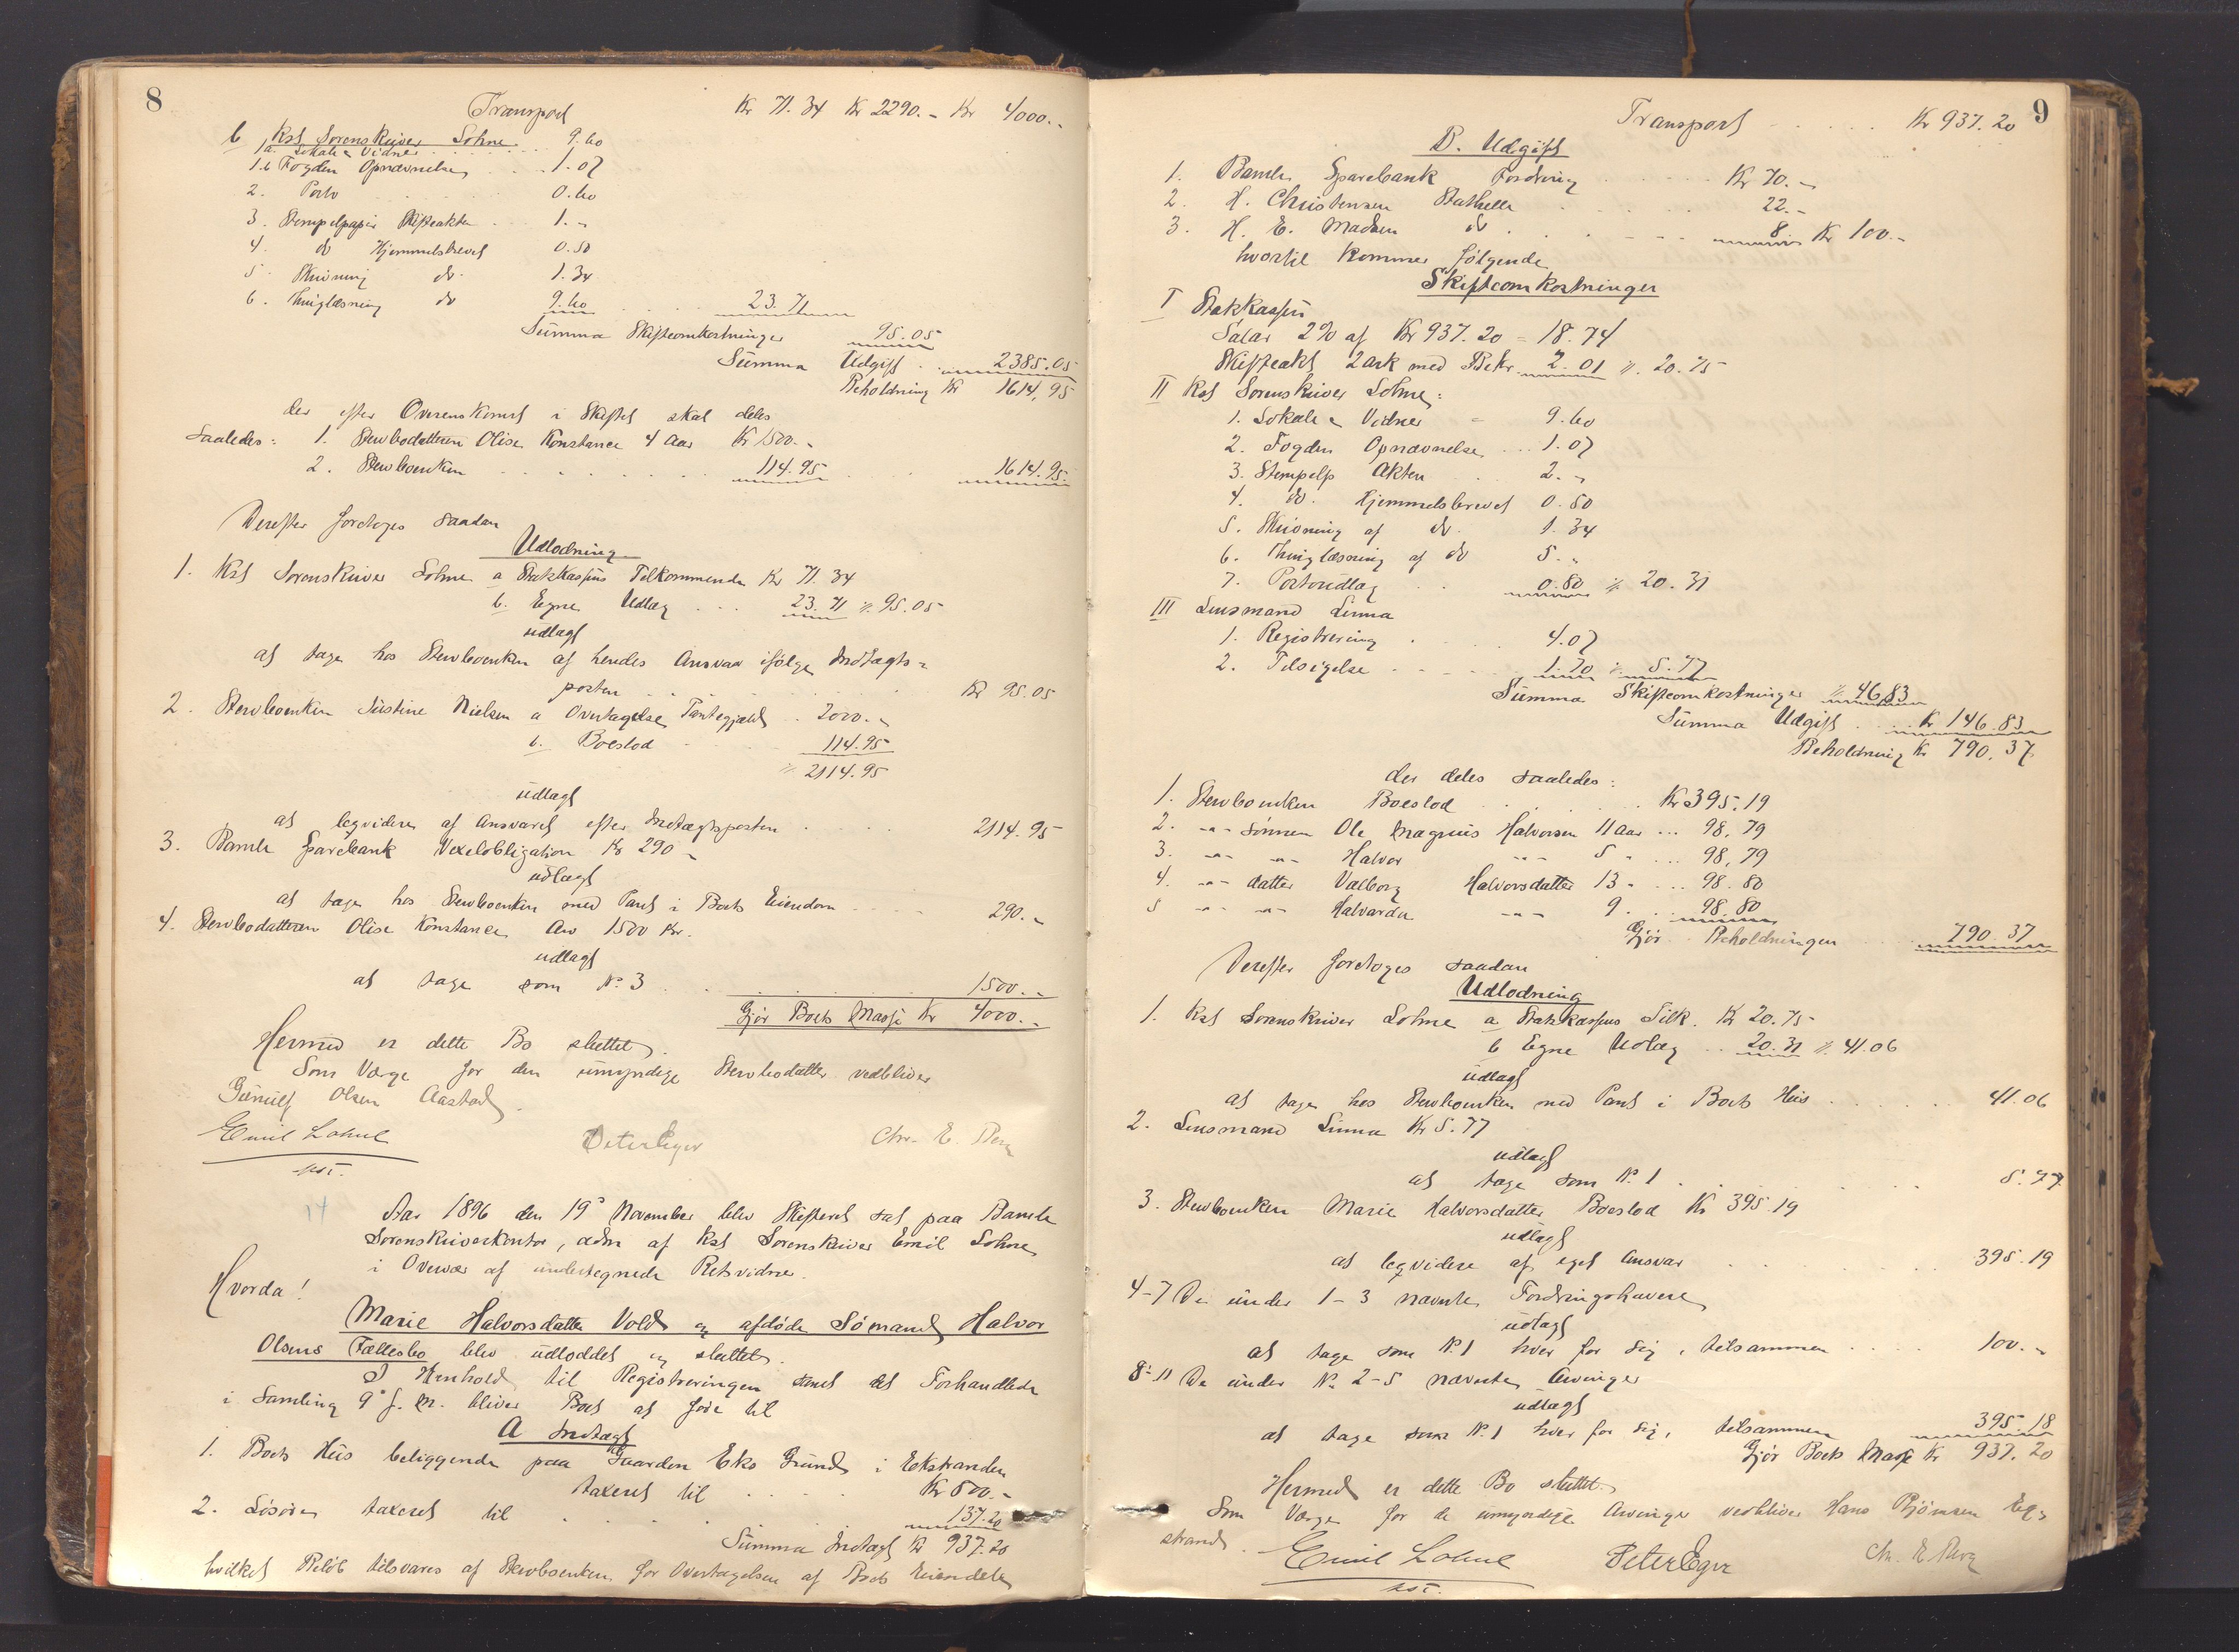 8
Transport Kr 71.34 Kr 2290.- Kr 4000.-
b Kst Sorenskriver Lohne
1a. Lokale & Vidner 9.60
1.b Fogden Opnævnelse 1.07
2. Porto 0.60
3. Stempelpapir Skifteakten 1.-
4. do Hjemmelsbrevet 0.50
5. Skrivning do. 1.34
6. Thinglæsning do 9.60 23.71
Summa Skifteomkostninger 95.05
Summa Udgift 2385.05
Beholdning Kr 1614,95
der efter Overenskomst i Skiftet skal deles
saaledes: 1. Stervbodatteren Olise Konstance 4 Aar Kr 1500.-
2. Stervboenken 114.95 1614.95
Derefter foretoges saadan
Udlodning
1. Kst Sorenskriver Lohne a Statskassens Tilkommende Kr 71.34
b. Egne Udlæg 23.71 " 95.05
udlagt
at tage hos Stervboenken af hendes Ansvar ifølge Indtægts=
posten Kr 95.05
2. Stervboenken Justine Nielsen a Overtagelse Pantegjæld 2000.-
b. Boeslod 114.95
" 2114.95
udlagt
at leqvidere af Ansvaret efter Indtægtsposten 2114.95
3. Bamle Sparebank Vexelobligation Kr 290.-
udlagt
at tage hos Stervboenken med Pant i Boets Eiendom 290.-
4. Stervbodatteren Olise Konstance Arv 1500 Kr.
udlagt
at tage som No 3 1500.-
Gjør Boets Masse Kr 4000.-
Hermed er dette Bo sluttet.
Som Værge for den umyndige Stervbodatter vedbliver
Gunulf Olsen Aastad.
Emil Lohne Peter Eger Chr. E.
cst.
14
Aar 1896 den 19de November blev Skifteret sat paa Bamle
Sorenskriverkontor, adm af Kst Sorenskriver Emil Lohne
i Overvær af undertegnede Retsvidner.
Hvorda!
Marie Halvorsdatter Vold og afdøde Sømand Halvor
Olsens Fællesbo blev udloddet og sluttet.
I Henhold til Registreringen samt det Forhandlede
i Samling 9de f. M. bliver Boet at føre til
A Indtægt
1. Boets Hus beliggende paa Gaarden Eks Grund i Ekstranden
taxeret til Kr 800.-
2. Løsøre taxeret til 137.20
Summa Indtægt Kr 937.20
hvilket Beløb tilsvares af Stervboenken for Overtagelsen af Boets Eiendele
9
Transport Kr 937.20
B. Udgift
1. Bamle Sparebank Fordring Kr 70.-
2. H. Christensen Stathelle 22.-
3. H. E. Madsen do 8 Kr 100.-
hvortil kommer følgende
Skifteomkostninger
I Statskassen
Salær 2% af Kr 937.20 = 18.74
Skifteakt 2 ark med Bekr. 2.01 " 20.75
II Kst Sorenskriver Lohne:
1. Lokale & Vidner 9.60
2. Fogden Opnævnelse 1.07
3. Stempelp Akten 2.-
4. do. Hjemmelsbrevet 0.50
5. Skrivning af do. 1.34
6. Thinglæsning af do 5.-
7. Portoudlæg 0.80 " 20.31
III Lensmand Linna
1. Registrering 4.07
2. Tilsigelse 1.70 " 5.77
Summa Skifteomkostninger " 46.83
Summa Udgift Kr 146.83
Beholdning Kr 790.37
der deles saaledes:
1. Stervboenken Boeslod Kr 395.19
2. -"- Sønnen Ole Magnus Halvorsen 11 Aar 98,79
3. -"- -"- Halvor -"- 5 " 98,79
4. -"- datter Valborg Halvorsdatter 13 " 98.80
5 -"- -"- Halvarda -"- 9 98.80
Gjør Beholdningen 790.37
Derefter foretoges saadan
Udlodning
1. Kst Sorenskriver Lohne a Statskassens Tilk. Kr 20.75
b Egne Udlæg 20.31 " 41.06
udlagt
at tage hos Stervboenken med Pant i Boets Hus 41.06
2. Lensmand Linna Kr 5.77
udlagt
at tage som No 1 5.77
3. Stervboenken Marie Halvorsdatter Boeslod Kr 395.19
udlagt
at leqvidere af eget Ansvar 395.19
4-7 De under 1-3 nævnte Fordringshavere
udlagt
at tage som No 1 hver for sig, tilsammen 100.-
8-11 De under No 2-5 nævnte Arvinger
udlagt
at tage som No 1 hver for sig, tilsammen 395.18
Gjør Boets Masse Kr 937.20
Hermed er dette Bo sluttet.
Som Værge for de umyndige Arvinger vedbliver Hans Bjørnsen Eeg=
strand.
Emil Lohne Peter Eger Chr. E.
cst.